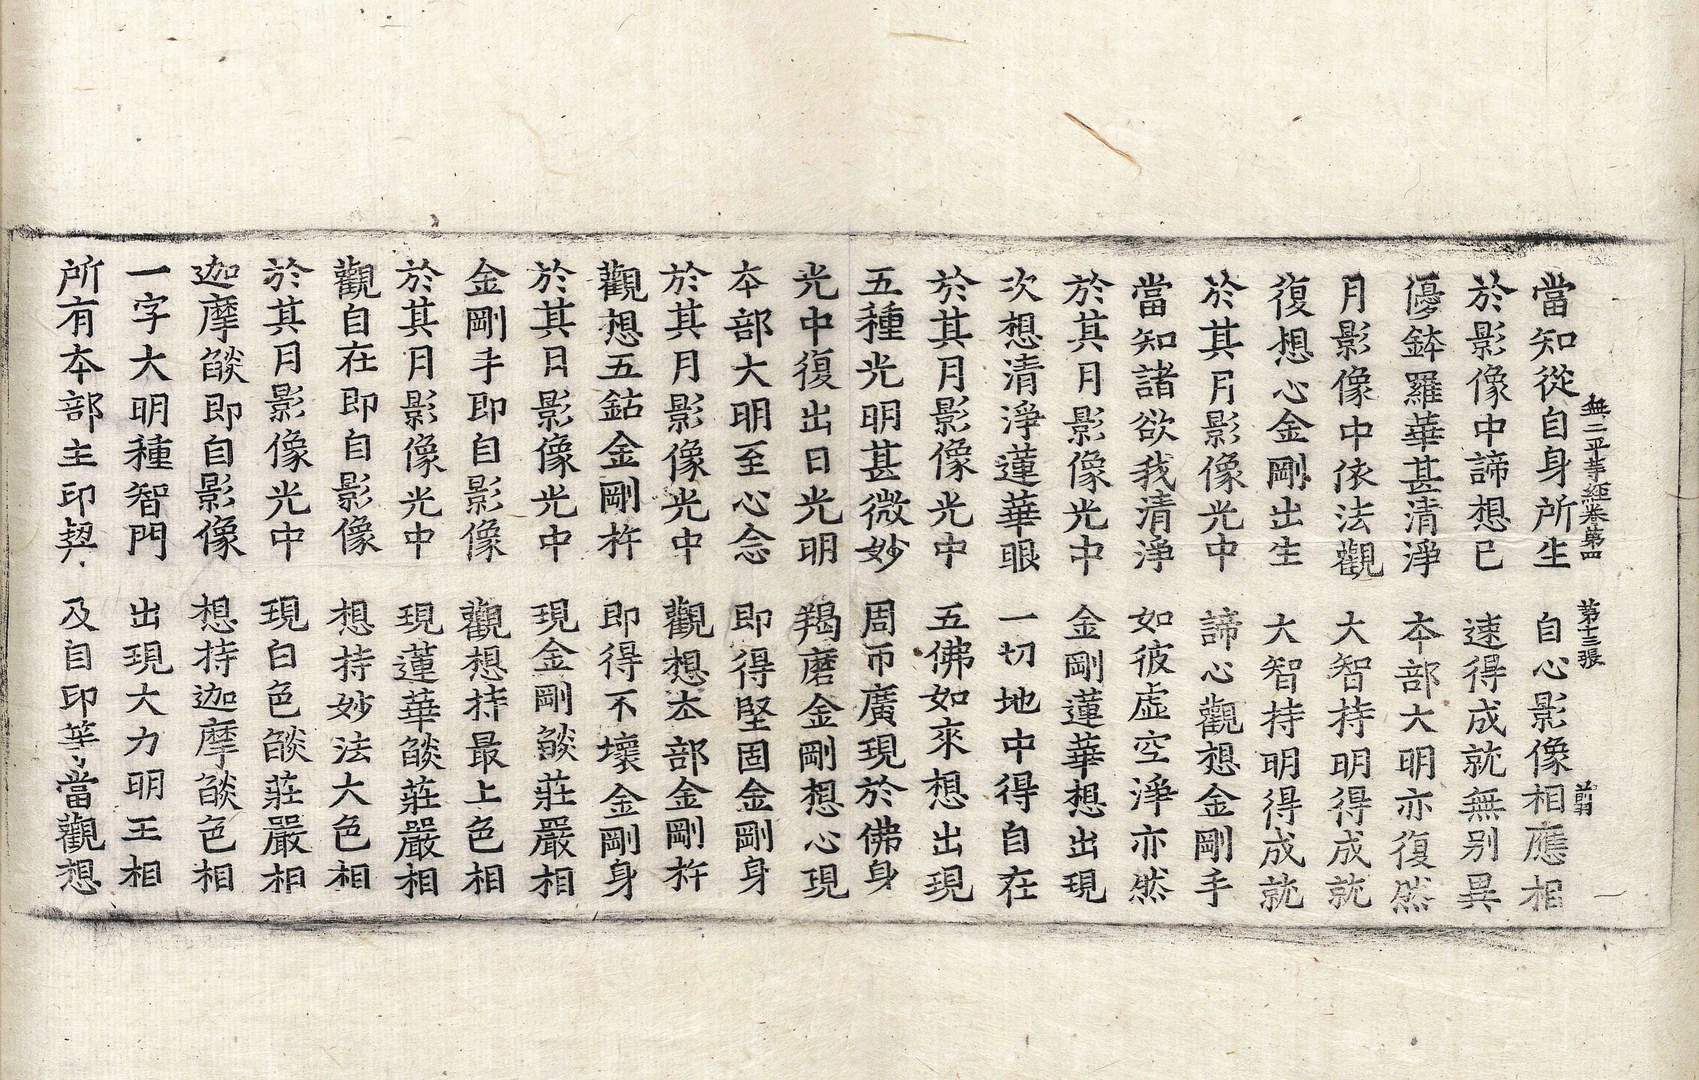 無二平等經卷第四 第十三張 前
當知從自身所生 自心影像相應相
於影像中諦想已 速得成就無别異
優鉢羅華甚清淨 本部大明亦復然
月影像中依法觀 大智持明得成就
復想心金剛出生 大智持明得成就
於其月影像光中 諦心觀想金剛手
當知諸欲我清淨 如彼虛空淨亦然
於其月影像光中 金剛蓮華想出現
次想清淨蓮華眼 一切地中得自在
於其月影像光中 五佛如來想出現
五種光明甚微妙 周帀廣現於佛身
光中復出日光明 羯磨金剛想心現
本部大明至心念 即得堅固金剛身
於其月影像光中 觀想本部金剛杵
觀想五鈷金剛杵 即得不壞金剛身
於其日影像光中 現金剛燄莊嚴相
金剛手即自影像 觀想持最上色相
於其月影像光中 現蓮華燄莊嚴相
觀自在即自影像 想持妙法大色相
於其月影像光中 現白色燄莊嚴相
迦摩燄即自影像 想持迦摩燄色相
一字大明種智門 出現大力明王相
所有本部主印契 及自印等當觀想